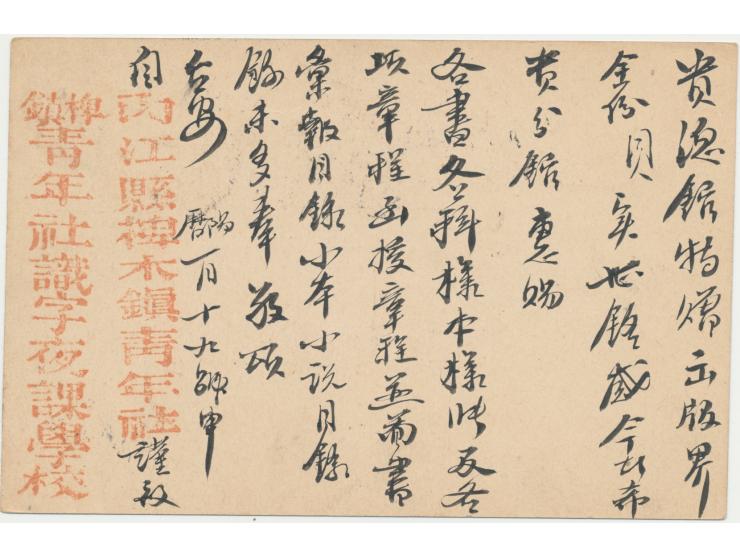 貴總館特贈出版界
全份貝實世銘感今次希
貴分館惠賜
各書各雜樣本樣張及各
項章程函授章程並圖書
彙報目錄小本小說目錄
餘未多奉敬頌
台安 陽曆一月十九號申
內江縣椑木鎮青年社謹啟
椑鎮青年社識字夜課學校